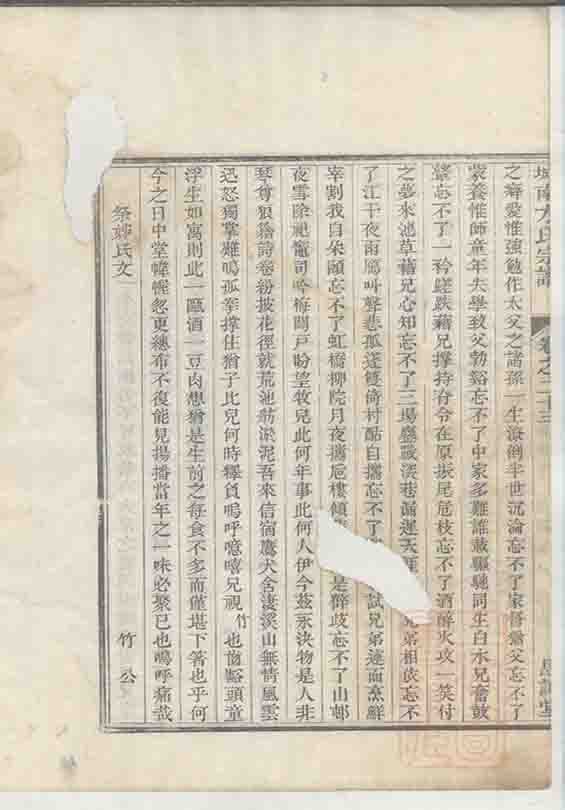 城南方氏宗譜
卷之二十三
之癖愛惟強勉作太父之諸孫一生潦倒半世沉淪忘不了家督嗣父忘不了
蒙養惟師童年失學致父勃谿忘不了中家多難誰載驅馳同生白水兄奮鼓
鼙忘不了一衿蹉跌藉兄撐持脊令在原振尾危枝忘不了酒醉火攻一笑付
之夢來池草藉兄心知忘不了三場鏖戰深巷漏遲天涯兄弟相依忘不
了江干夜雨雁叫聲悲孤篷雙倚村酤自攜忘不了試兄弟遽而烹鮮
宰割我自朵頤忘不了虹橋柳院月夜攜卮樓傾是辭歧忘不了山邨
夜雪除祀竈司吟梅閉戶盼望牧兒此何年事此何人伊今茲永決物是人非
琴尊狼籍詩卷紛披花徑就荒池荔淤泥吾來信宿鷹犬舍淒溪山無情風雲
迅怒獨掌難鳴孤拳撐住猶子比兒何時釋負嗚呼噫嘻兄視竹也齒豁頭童
浮生如寓則此一甌酒一豆肉想猶是生前之每食不多而僅堪下箸也乎何
今之日中堂幃幄忽更繐布不復能見揚播當年之一味必聚已也嗚呼痛哉
祭嫂氏文
竹公